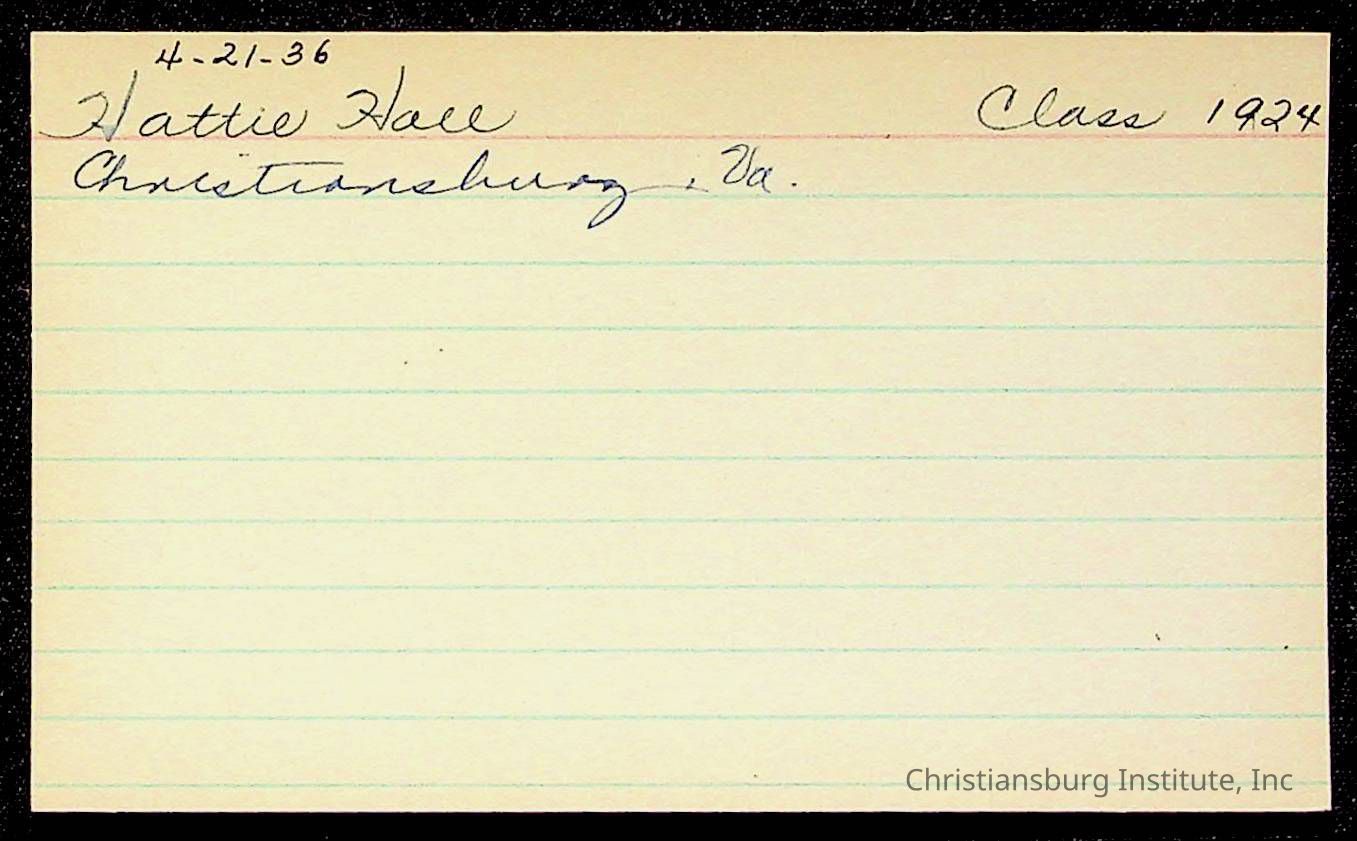 4-21-36
Hattie Hall Class 1924
Christiansburg, Va.
Christiansburg Institute, Inc